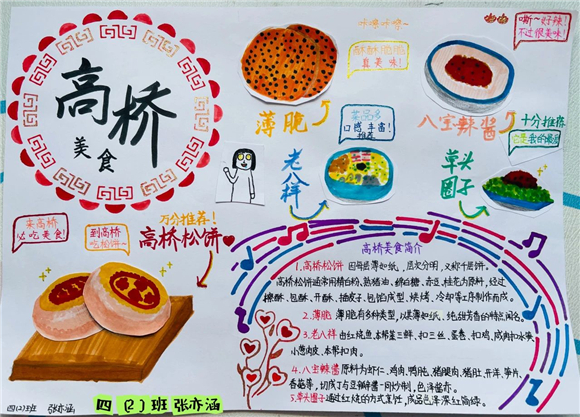 高桥
美食
咔嚓咔嚓~
真美味!
嘶~好辣!
不过很美味!
薄脆
菜品多
口感丰富!
推荐
八宝辣酱
十分推荐
老八样
草头
圈子
来高桥
必吃美食!
到高桥
吃松饼~
万分推荐!
高桥松饼
高桥美食简介
1.高桥松饼 因每层薄如纸,层次分明,又称千层饼。
高桥松饼通常用精白粉、熟猪油、绵白糖、赤豆、桂花为原料,经过
擦酥、包酥、开酥、揿皮子、包馅成型、烘烤、冷却等工序制作而成。
2.薄脆 薄脆有多种类型,以其薄如纸、纯甜芳香的特点闻名。
3.老八样 由红烧鱼、本帮蒸三鲜、扣三丝、蛋卷、扣鸡、咸肉扣水笋、
小葱肉皮、本帮扣肉。
4.八宝辣酱 原料为虾仁、鸡肉、鸭肫、猪腿肉、猪肚、开洋、笋片、
香菇等,切成丁与豆瓣辣酱一同炒制,色泽鲜亮。
5.草头圈子 通过红烧的方式烹饪,成品色泽深红简绿。
四(2)班 张亦涵
四(2)班 张亦涵